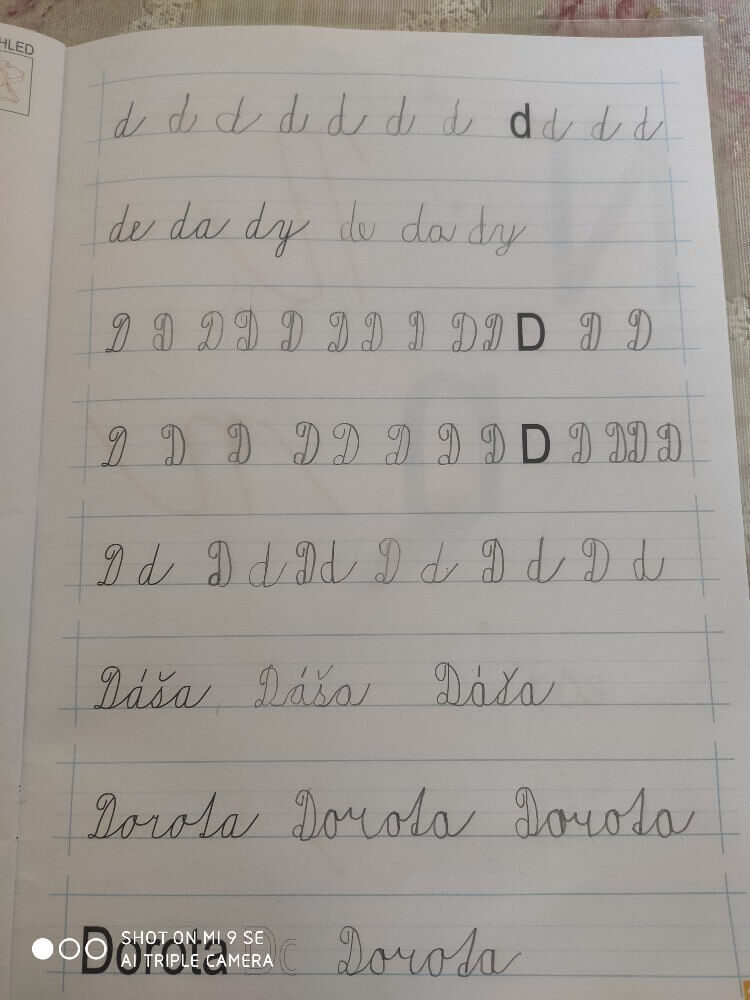 HLED
d d d d d d d d d d d
de da dy de da dy
D D D D D D D D D D D D D
D D D D D D D D D D D D D
D d D d D d D d D d D d
Dáša Dáša Dáša
Dorota Dorota Dorota
Dorota Do Dorota
SHOT ON MI 9 SE
AI TRIPLE CAMERA